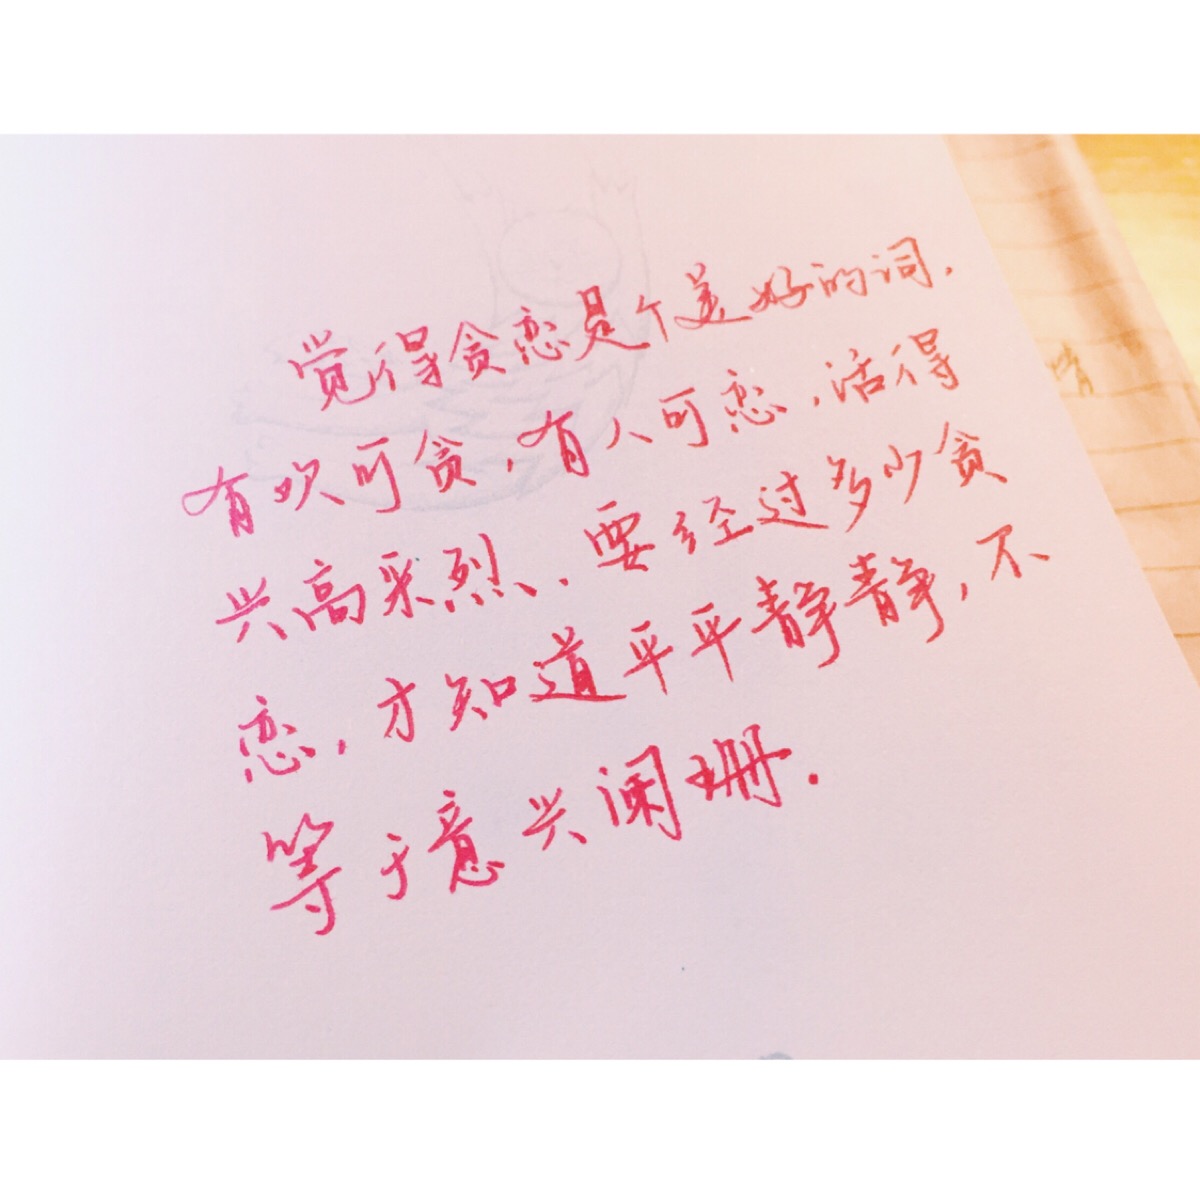 觉得贪恋是个美好的词.
有欢可贪,有人可恋,活得
兴高采烈.要经过多少贪
恋,才知道平平静静,不
等于意兴阑珊.